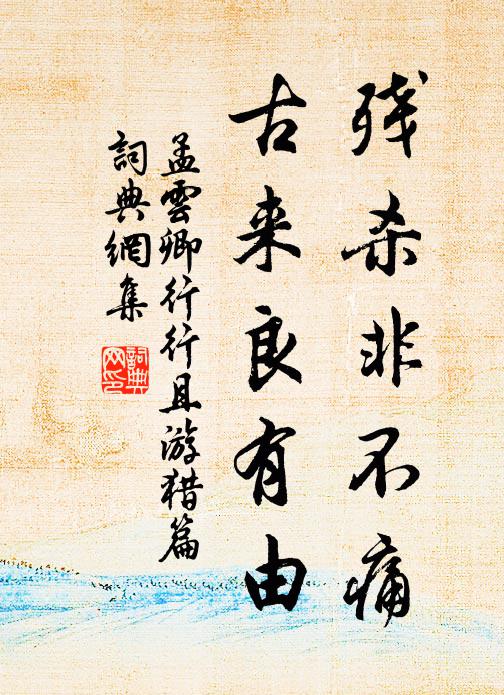 残杀非不痛
古来良有由
孟雲卿行行且游猎篇
詞典網集
詞典
网印